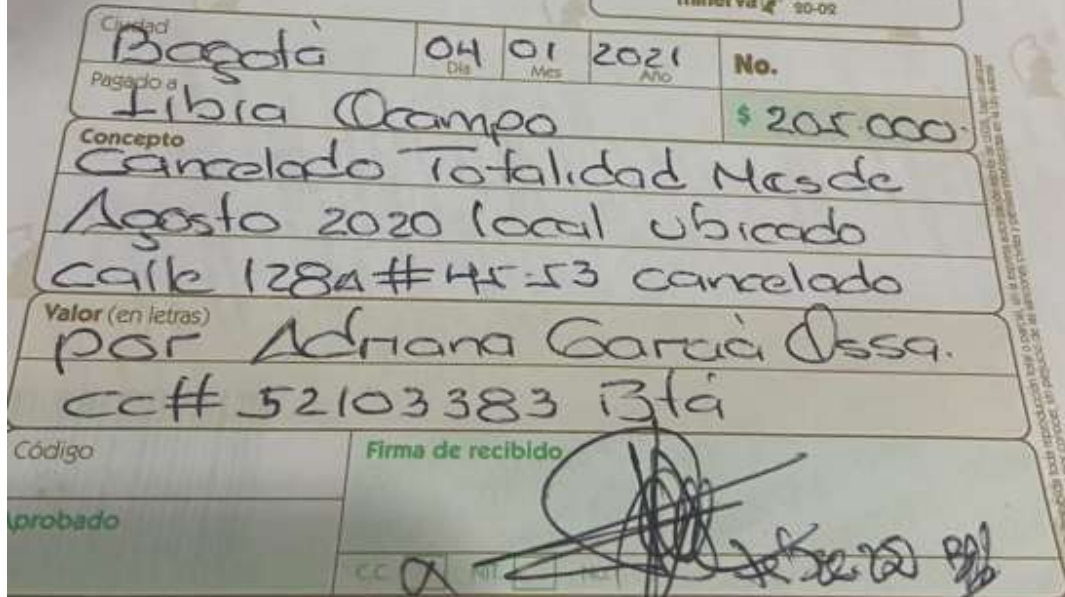 minerva 20-02
Ciudad Bogotá 04 01 2021 No.
Día Mes Año
Pagado a Libia Ocampo $ 205.000.
Concepto
Cancelado Totalidad Mes de
Agosto 2020 local ubicado
calle 128A # 45-53 cancelado
Valor (en letras)
por Adriana Garcià Ossa.
cc# 52103383 Btá
Código Firma de recibido
Aprobado
C.C. NIT. No.